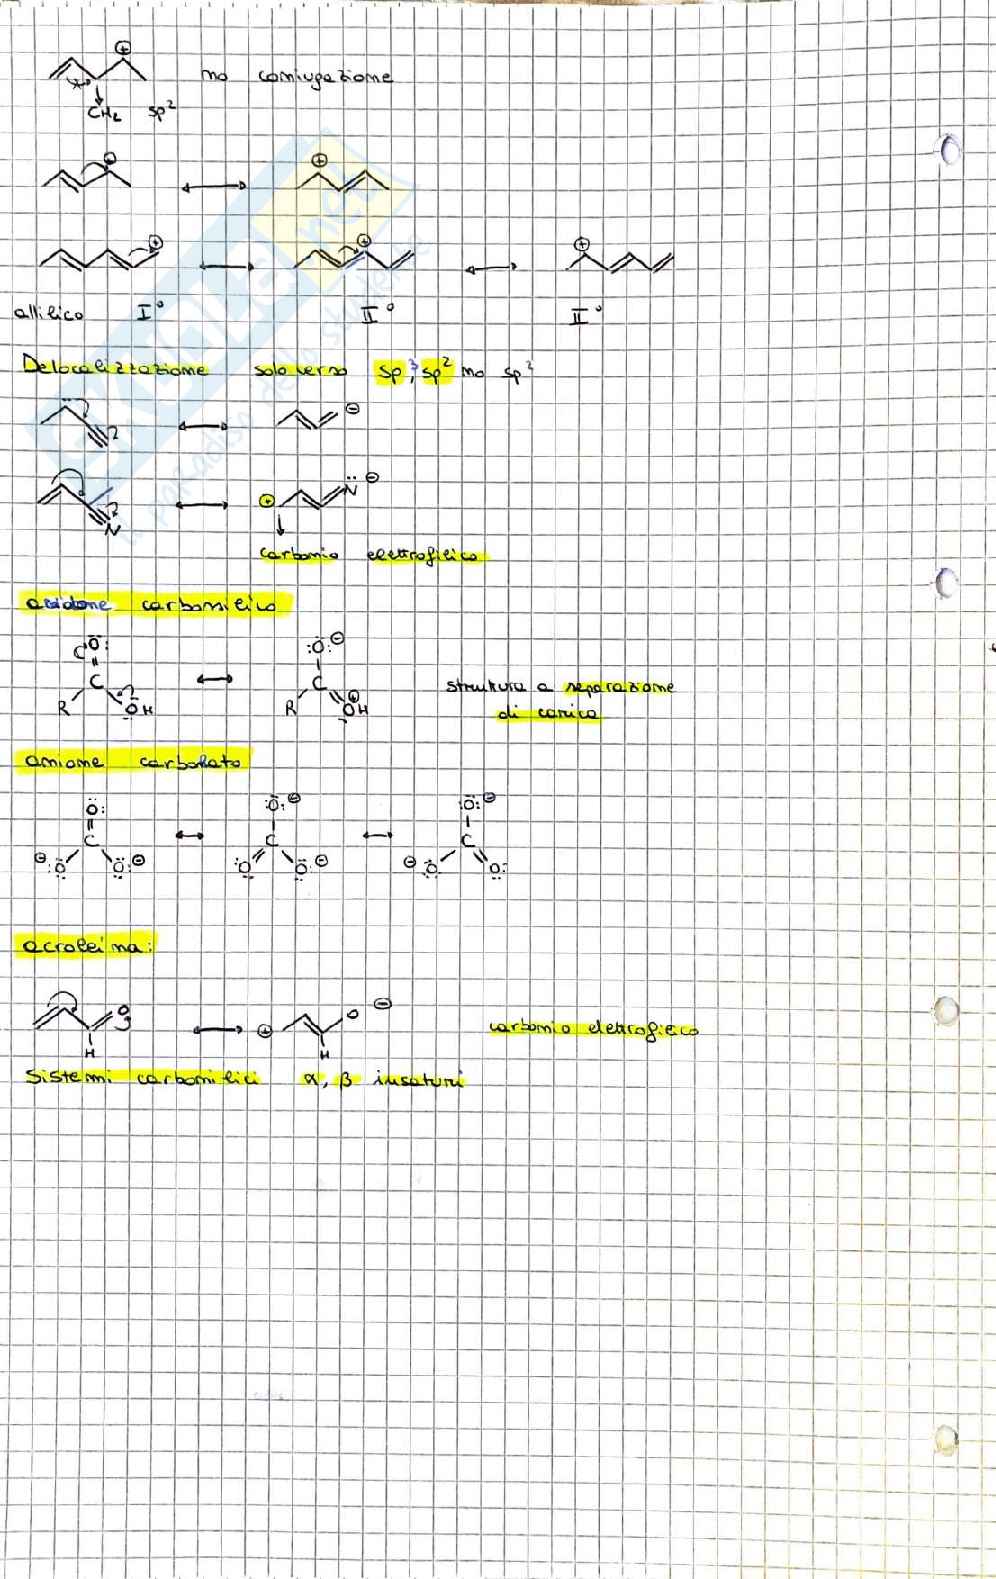 ⊕
no coniugazione
CH₂ sp²
⊕ ⊕
⊕ ⊕ ⊕
allilico I° II° II°
Delocalizzazione solo verso sp, sp² no sp³
⊖
N ⊕ N ⊖
carbonio elettrofilico
acidone carbossilico
O: :O: ⊖
C C
R OH R OH ⊕
struttura a separazione
di carica
anione carbonato
:O: :O: ⊖ :O: ⊖
C C C
⊖ :O: :O: ⊖ O: :O: ⊖ ⊖ :O: O:
acroleina:
O ⊕ O ⊖ carbonio elettrofilico
H H
Sistemi carbonilici α, β insaturi